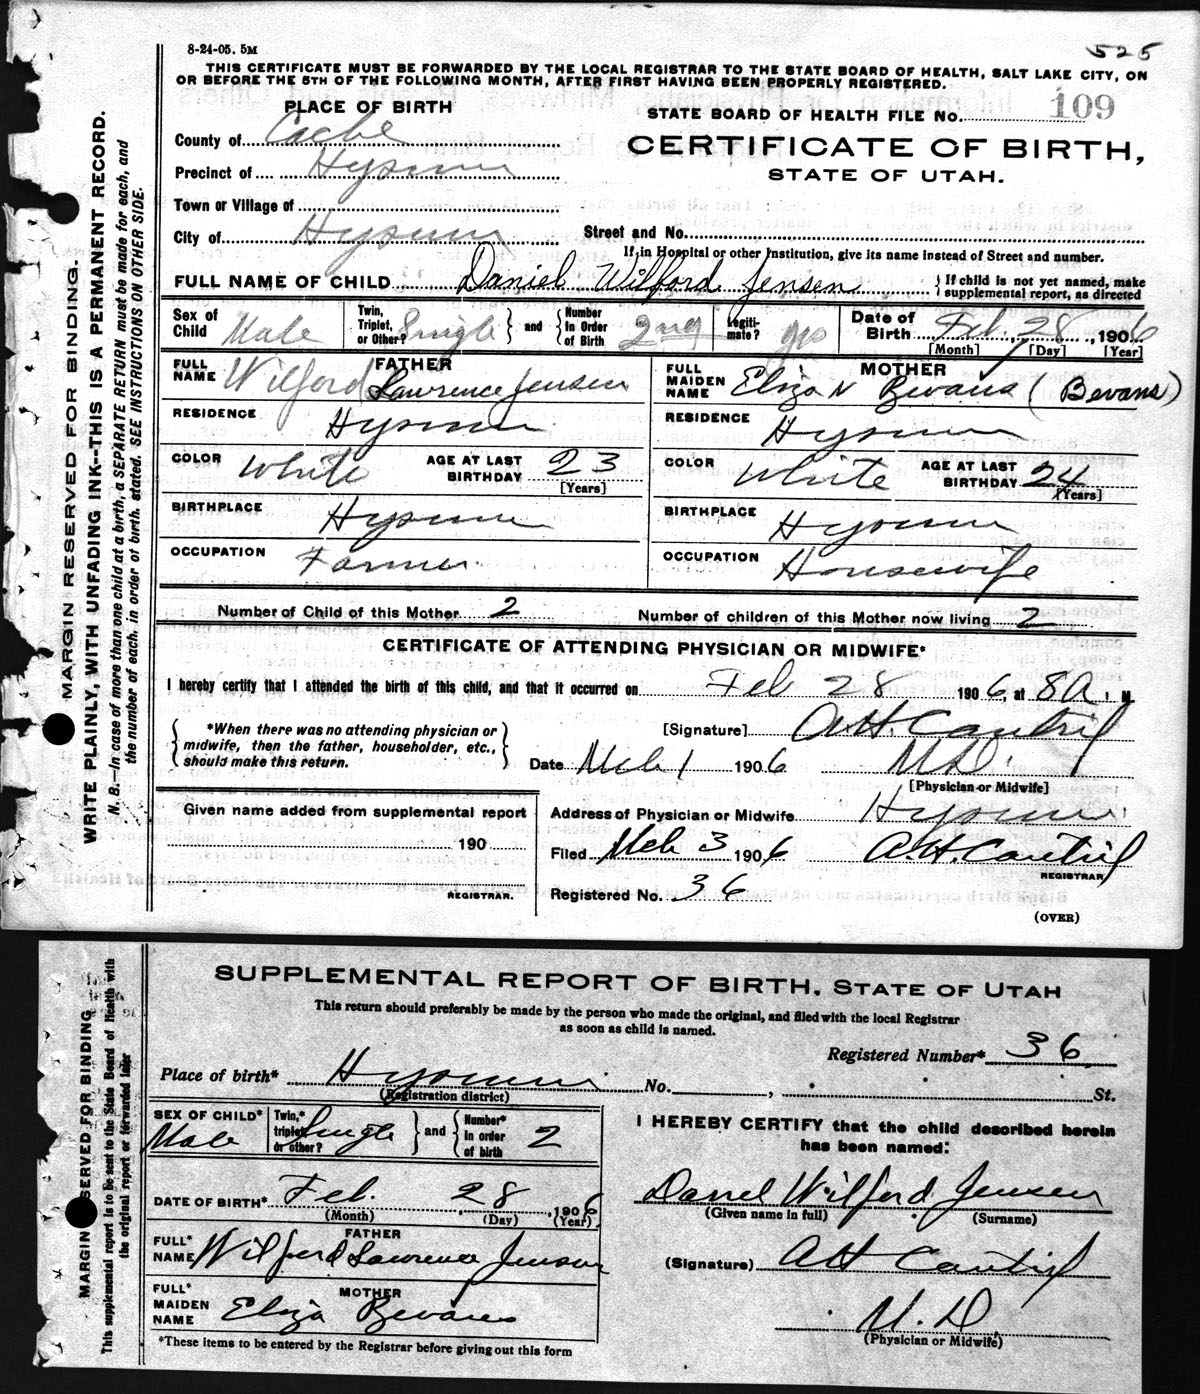 8-24-05. 5M
525
THIS CERTIFICATE MUST BE FORWARDED BY THE LOCAL REGISTRAR TO THE STATE BOARD OF HEALTH, SALT LAKE CITY, ON
OR BEFORE THE 5TH OF THE FOLLOWING MONTH, AFTER FIRST HAVING BEEN PROPERLY REGISTERED.
MARGIN RESERVED FOR BINDING.
WRITE PLAINLY, WITH UNFADING INK--THIS IS A PERMANENT RECORD.
N. B.—In case of more than one child at a birth, a SEPARATE RETURN must be made for each, and
the number of each, in order of birth, stated. SEE INSTRUCTIONS ON OTHER SIDE.
PLACE OF BIRTH
STATE BOARD OF HEALTH FILE No. 109
County of Cache
CERTIFICATE OF BIRTH,
Precinct of Hyrum
STATE OF UTAH.
Town or Village of
City of Hyrum
Street and No.
If in Hospital or other Institution, give its name instead of Street and number.
FULL NAME OF CHILD Daniel Wilford Jensen { If child is not yet named, make
supplemental report, as directed
Sex of Child Male
Twin, Triplet, or Other? Single } and { Number in Order of Birth 2nd
Legiti-mate? yes
Date of Birth Feb. 28, 1906
[Month] [Day] [Year]
FATHER
FULL NAME Wilford Lawrence Jensen
MOTHER
FULL MAIDEN NAME Eliza Bevans (Bevans)
RESIDENCE Hyrum
RESIDENCE Hyrum
COLOR White AGE AT LAST BIRTHDAY 23 [Years]
COLOR White AGE AT LAST BIRTHDAY 24 [Years]
BIRTHPLACE Hyrum
BIRTHPLACE Hyrum
OCCUPATION Farmer
OCCUPATION Housewife
Number of Child of this Mother 2 Number of children of this Mother now living 2
CERTIFICATE OF ATTENDING PHYSICIAN OR MIDWIFE*
I hereby certify that I attended the birth of this child, and that it occurred on Feb 28 1906, at 8 A. M.
{ *When there was no attending physician or
midwife, then the father, householder, etc.,
should make this return. }
[Signature] A.H. Cantril
Date Mch 1 1906 M.D.
[Physician or Midwife]
Given name added from supplemental report
190
REGISTRAR.
Address of Physician or Midwife Hyrum
Filed Mch 3 1906 A.H. Cantril
REGISTRAR
Registered No. 36
(OVER)
MARGIN RESERVED FOR BINDING
This supplemental report is to be sent to the State Board of Health with
the original report or forwarded later
SUPPLEMENTAL REPORT OF BIRTH, STATE OF UTAH
This return should preferably be made by the person who made the original, and filed with the local Registrar
as soon as child is named.
Registered Number* 36
Place of birth* Hyrum No. , St.
(Registration district)
SEX OF CHILD* Male
Twin,* triplet or other? Single } and { Number* in order of birth 2
I HEREBY CERTIFY that the child described herein
has been named:
DATE OF BIRTH* Feb. 28, 1906
(Month) (Day) (Year)
Daniel Wilford Jensen
(Given name in full) (Surname)
FATHER
FULL* NAME Wilford Lawrence Jensen
(Signature) A H Cantril
MOTHER
FULL* MAIDEN NAME Eliza Bevans
M.D.
(Physician or Midwife)
*These items to be entered by the Registrar before giving out this form